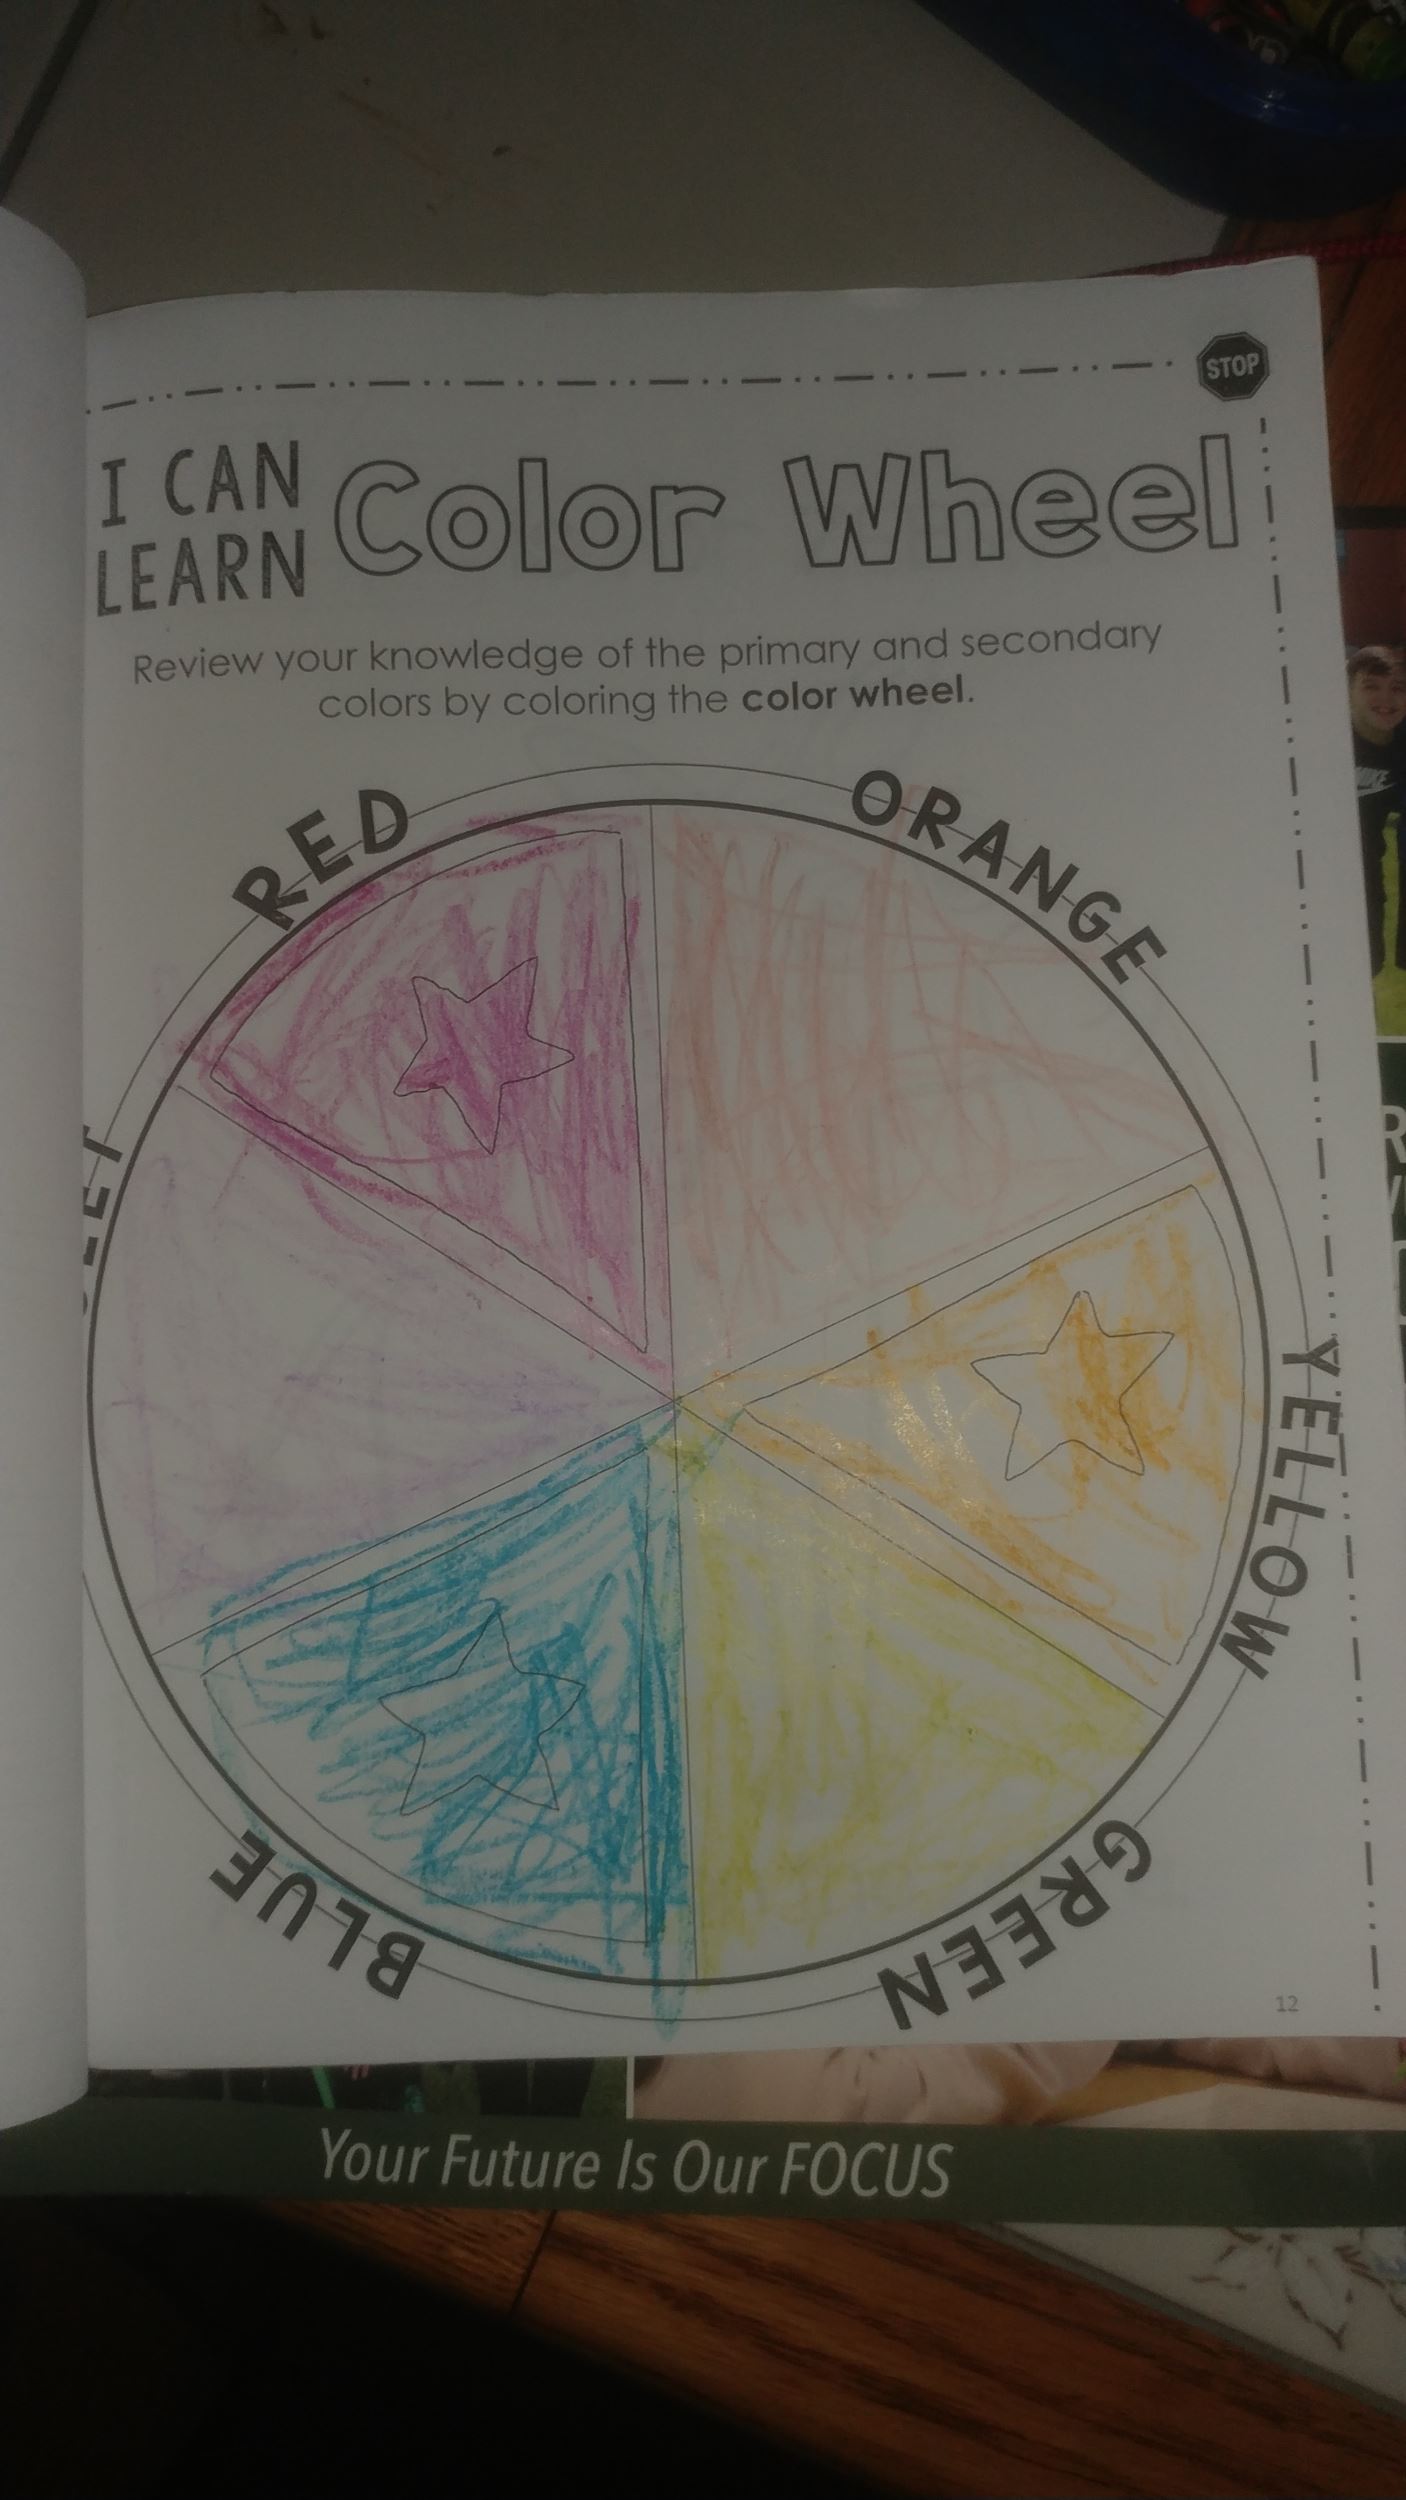 STOP
I CAN
LEARN
Color Wheel
Review your knowledge of the primary and secondary
colors by coloring the color wheel.
RED
ORANGE
YELLOW
GREEN
BLUE
12
Your Future Is Our FOCUS